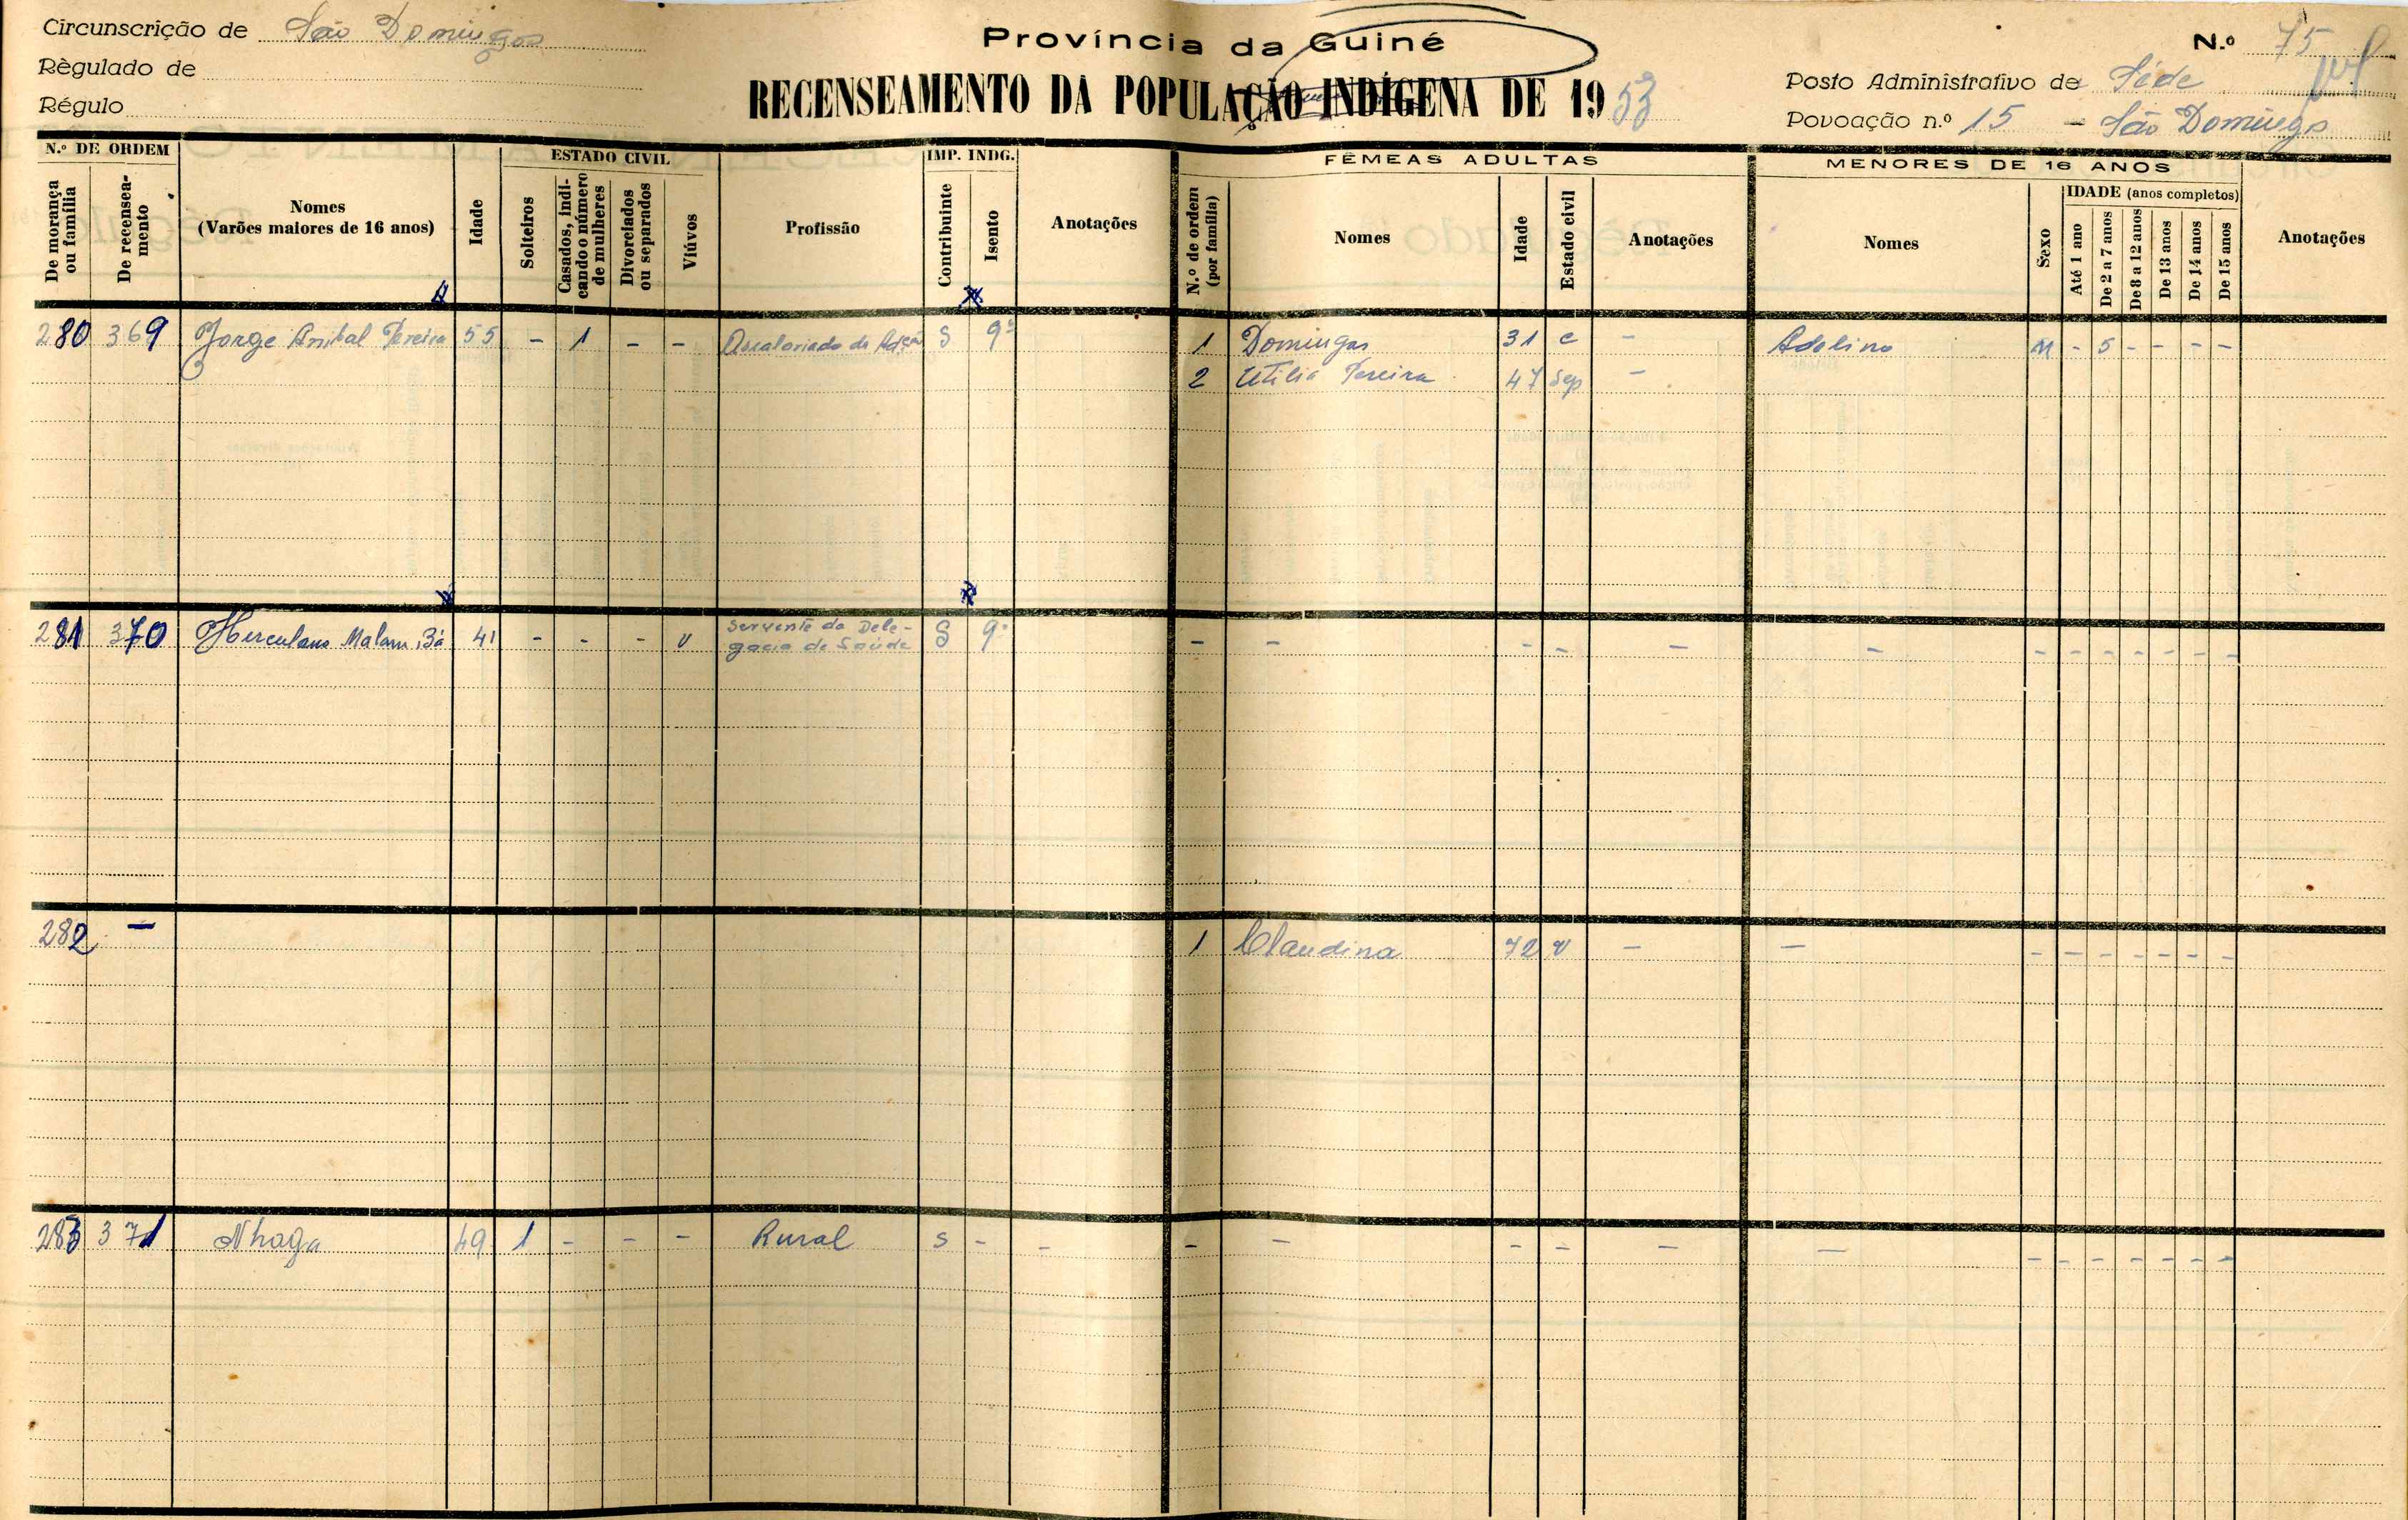 Circunscrição de São Domingos
Règulado de
Régulo
Província da Guiné
RECENSEAMENTO DA POPULAÇÃO INDÍGENA DE 1953
N.º 75
Posto Administrativo de Séde
Povoação n.º 15 - São Domingos
N.º DE ORDEM
De morança ou família
De recensea-mento
Nomes
(Varões maiores de 16 anos)
Idade
ESTADO CIVIL
Solteiros
Casados, indi-cando o número de mulheres
Divorciados ou separados
Viúvos
Profissão
IMP. INDG.
Contribuinte
Isento
Anotações
FÊMEAS ADULTAS
N.º de ordem (por família)
Nomes
Idade
Estado civil
Anotações
MENORES DE 16 ANOS
Nomes
Sexo
IDADE (anos completos)
Até 1 ano
De 2 a 7 anos
De 8 a 12 anos
De 13 anos
De 14 anos
De 15 anos
Anotações
280 369 Jorge Anibal Pereira 55 - 1 - - Assalariado da S 9º 1 Domingas 31 c - Adelino M - 5 - - - -
2 Utilia Pereira 47 Sep -
281 370 Herculano Malam Bá 41 - - - v Servente da Dele-
gacia de Saúde S 9º - - - - - - - - - - - - -
282 - 1 Claudina 72 v - - - - - - - - -
283 371 Nhaga 49 1 - - - Rural S - - - - - - - - - - - - - - -